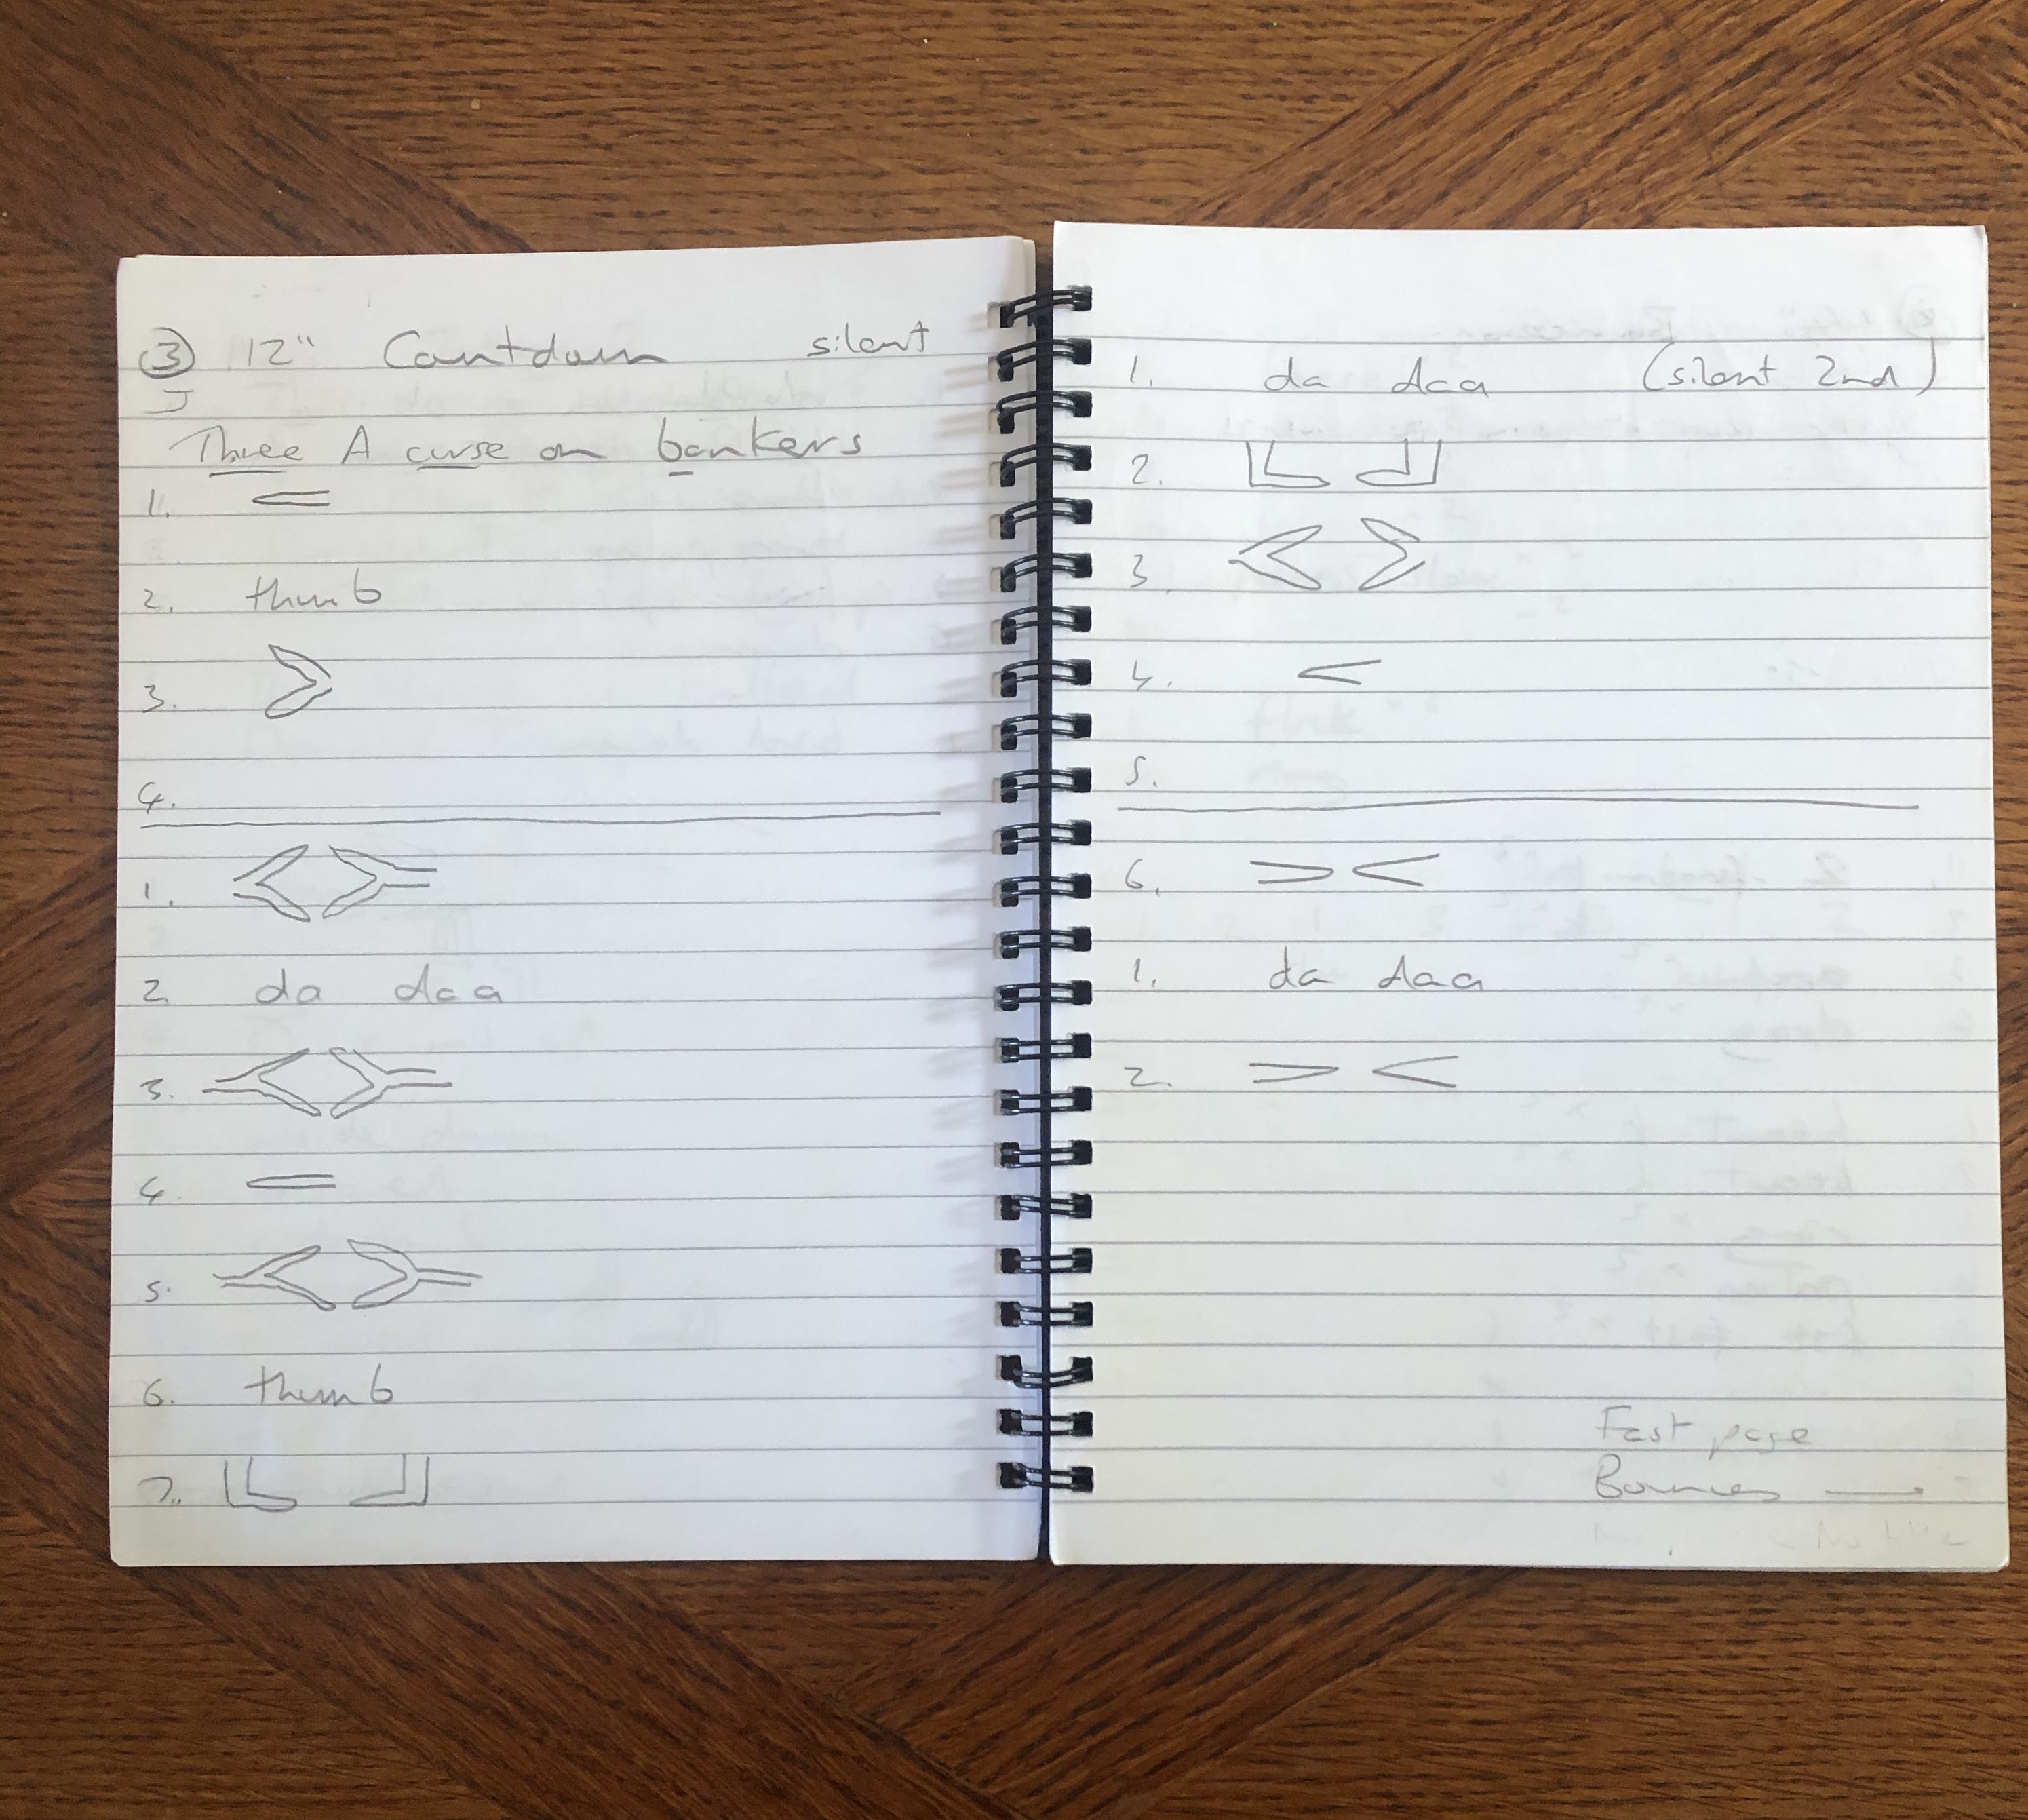 ③ 12" Countdown silent
J
Three A curse on bankers
1.
2. thumb
3.
4.
1.
2 da daa
3.
4.
5.
6. thumb
7.
1. da daa (silent 2nd)
2.
3.
4.
5.
6.
1. da daa
2.
Fast page
Bounces